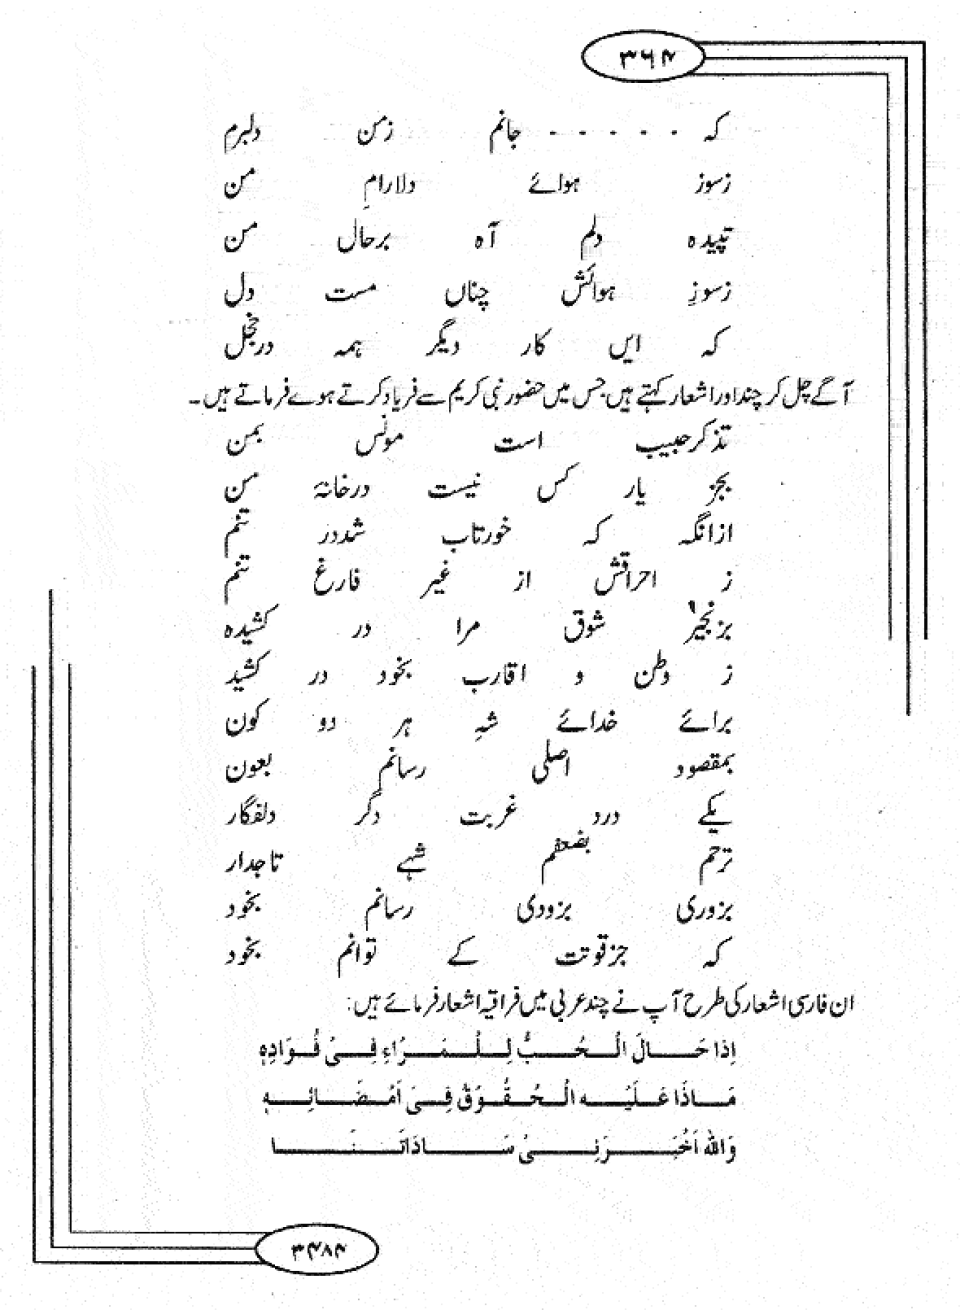 ۳۶۴
کہ ۔ ۔ ۔ ۔ ۔ جانم زمن دلبرم
زسوز ہوائے دلارامِ من
تپیدہ دلم آہ برحال من
زسوزِ ہوائش چناں مست دل
کہ ایں کار دیگر ہمہ درخجل
آگے چل کر چند اور اشعار کہتے ہیں جس میں حضور نبی کریم سے فریاد کرتے ہوے فرماتے ہیں۔
تذکر حبیب است مونس بمن
بجز یار کس نیست درخانۂ من
ازانگہ کہ خورتاب شددر تنم
ز احراقش از غیر فارغ تنم
بزنجیر شوق مرا در کشیدہ
ز وطن و اقارب بخود در کشید
برائے خدائے شہِ ہر دو کون
بمقصود اصلی رسانم بعون
یکے درد غربت دگر دلفگار
ترحم بضعفم شہے تاجدار
بزوری بزودی رسانم بخود
کہ جزقوتت کے توانم بخود
ان فارسی اشعار کی طرح آپ نے چند عربی میں فراقیہ اشعار فرمائے ہیں:
اِذَا حَالَ الْحُبُّ لِلْمَرْاءِ فِیْ فُوَادِہٖ
مَاذَا عَلَیْہ الْحُقُوْقُ فِیْ اَمْضَائِہٖ
وَاللہ اَخْبَرَنِیْ سَادَاتَنَا